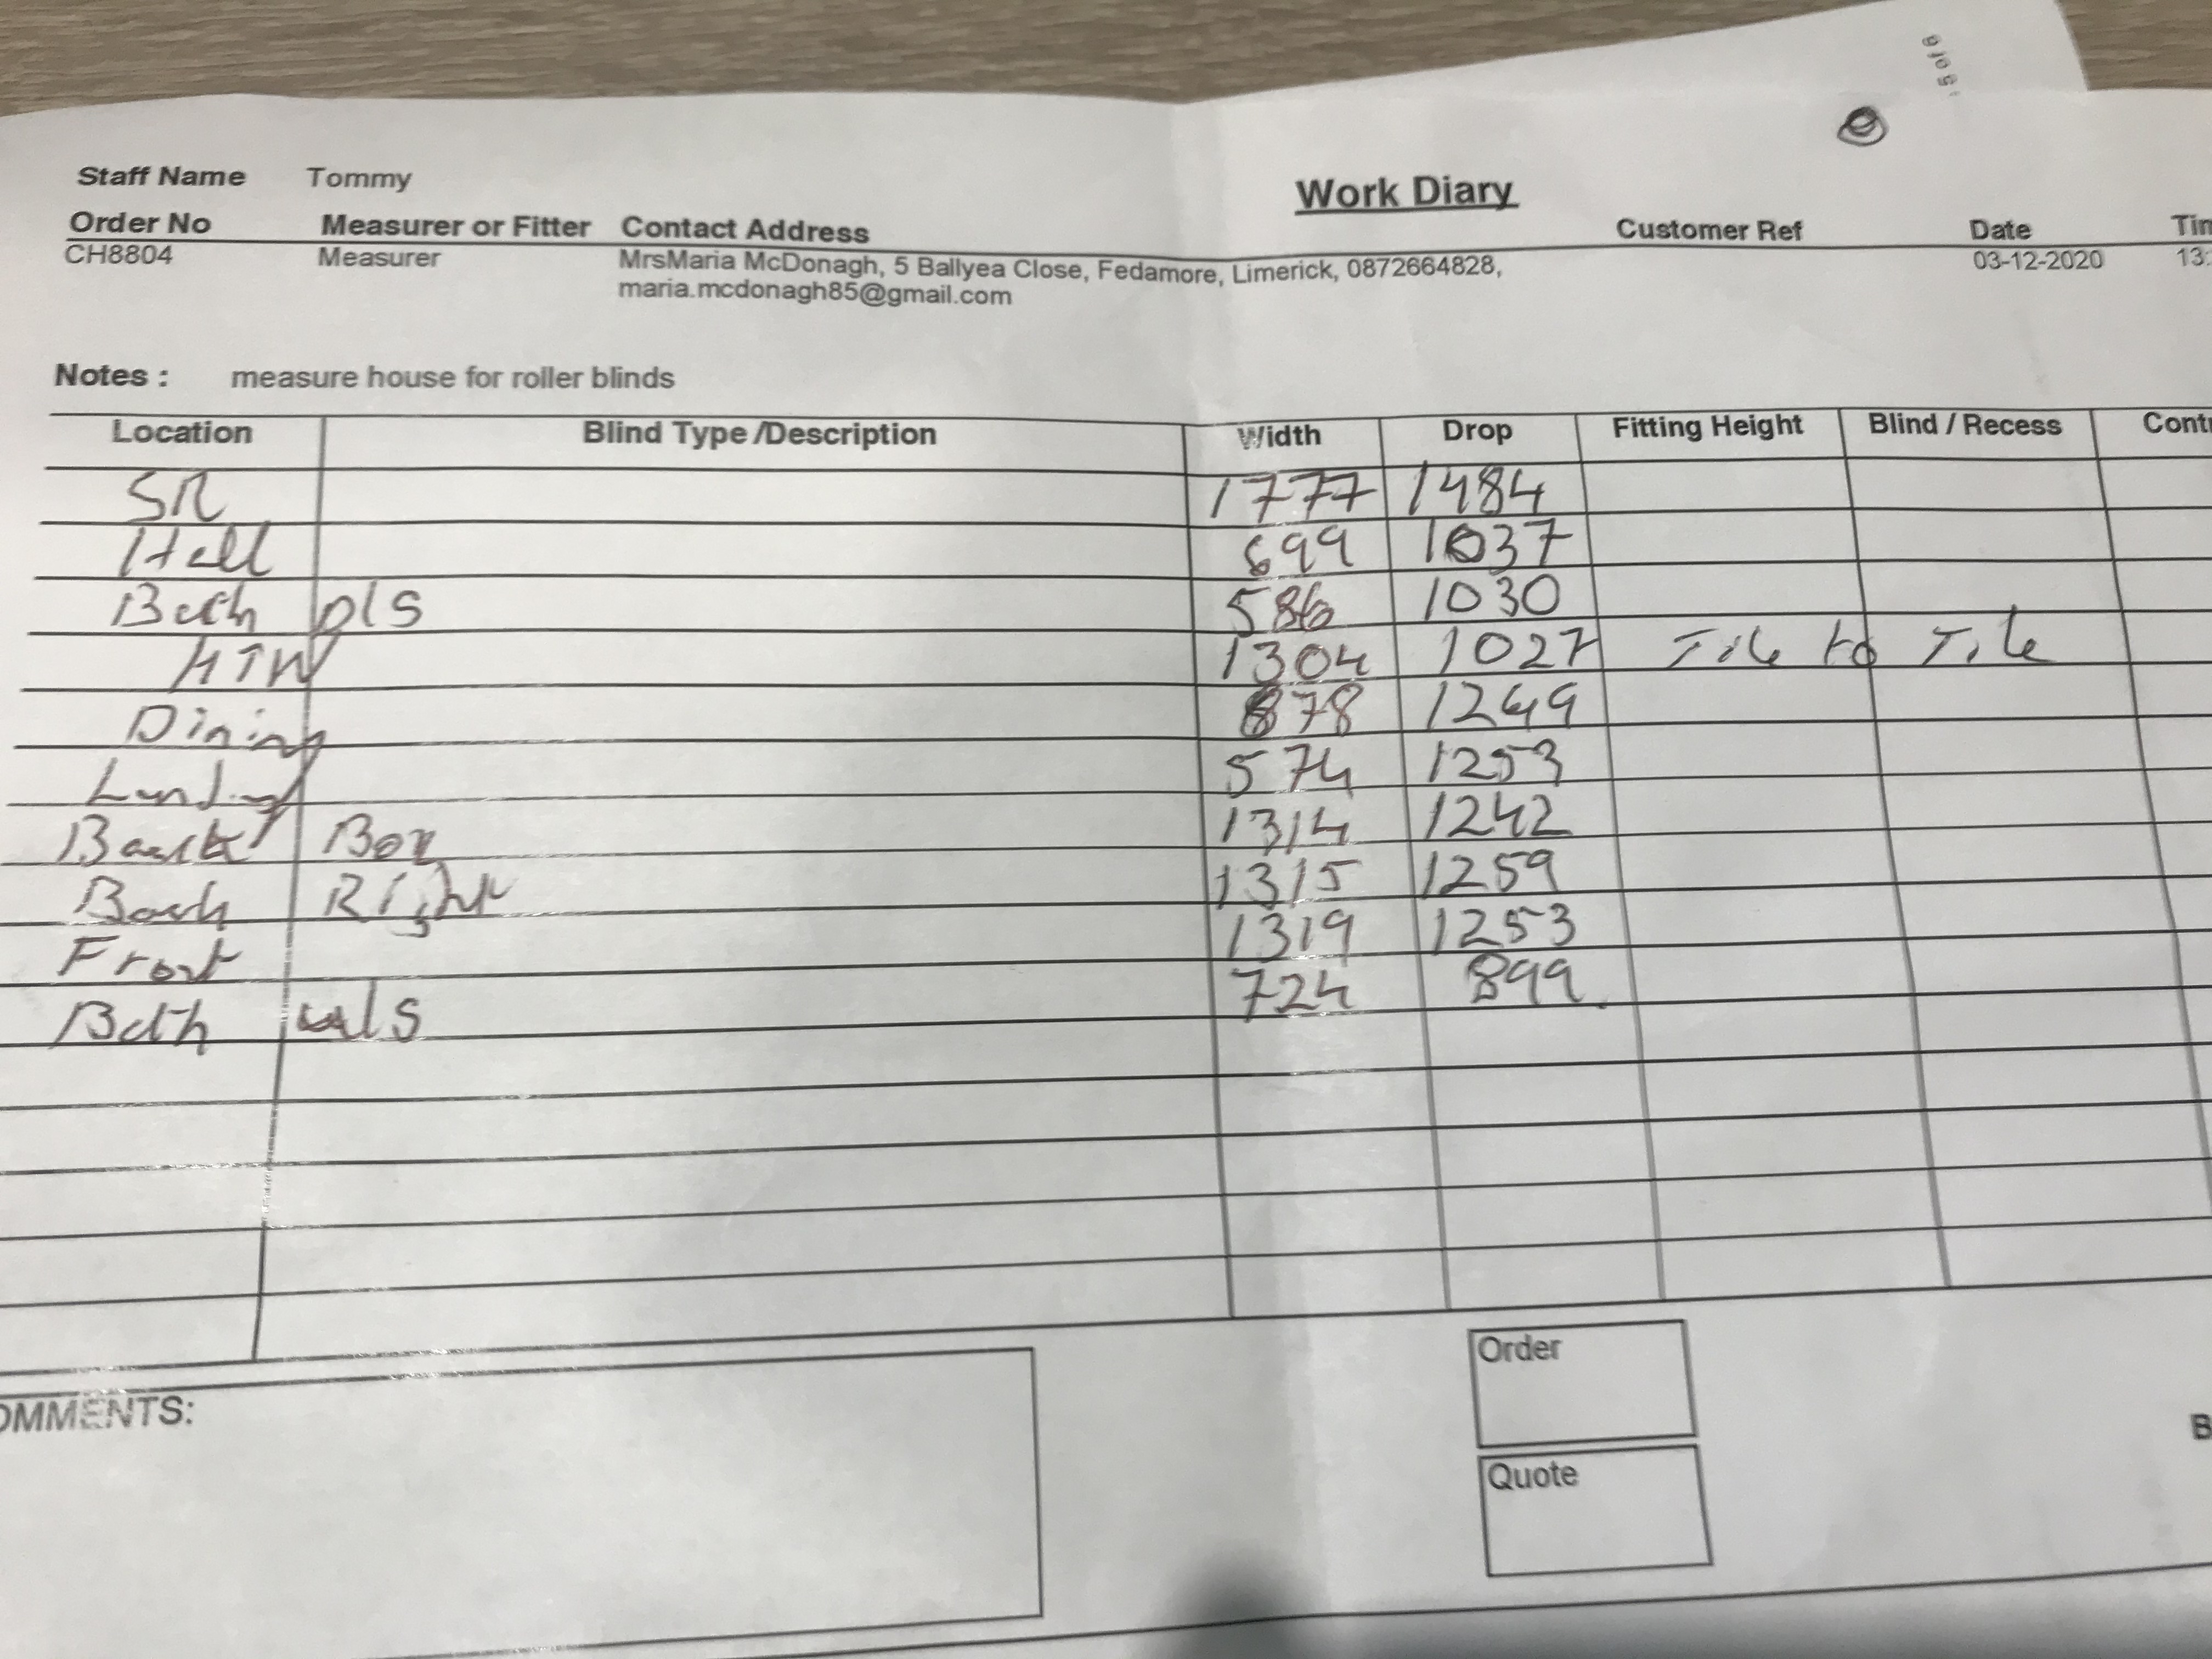 Staff Name Tommy
Work Diary
Order No Measurer or Fitter Contact Address Customer Ref Date
CH8804 Measurer MrsMaria McDonagh, 5 Ballyea Close, Fedamore, Limerick, 0872664828, 03-12-2020 13:
maria.mcdonagh85@gmail.com
Notes : measure house for roller blinds
Location Blind Type /Description Width Drop Fitting Height Blind / Recess
SR 1777 1484
Hall 699 1037
Bath DLS 586 1030
KTW 1304 1027 Tile to Tile
Dining 878 1249
Landing 574 1253
Back Box 1314 1242
Back Right 1315 1259
Front 1319 1253
Bath uls 724 899
Order
OMMENTS:
Quote